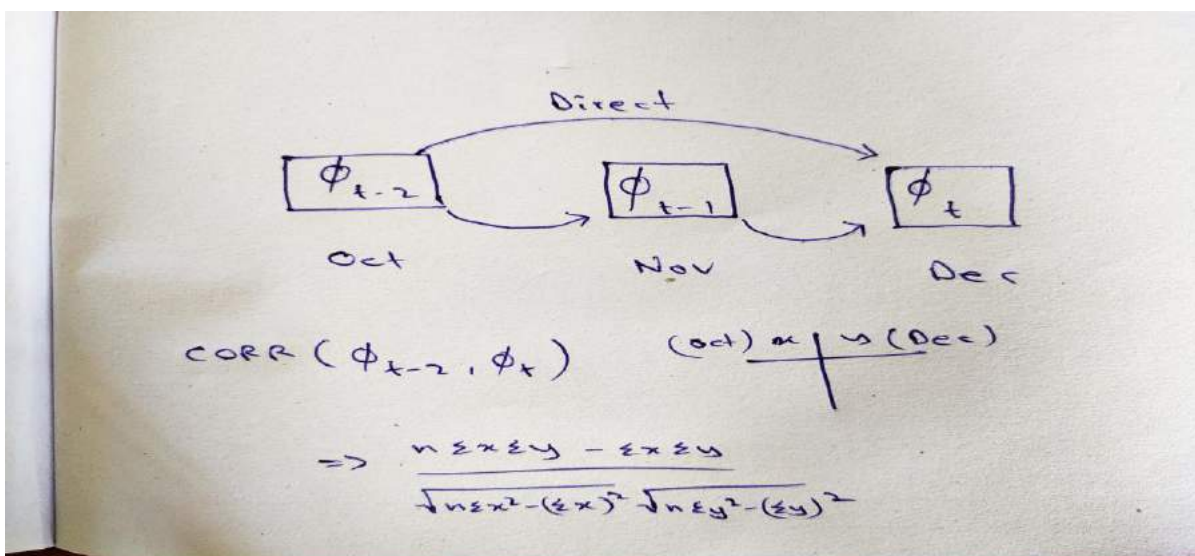 Direct
ϕt-2 ϕt-1 ϕt
Oct Nov Dec
CORR (ϕt-2, ϕt) (oct) x | y (Dec)
=> nΣxΣy - ΣxΣy
√nΣx²-(Σx)² √nΣy²-(Σy)²